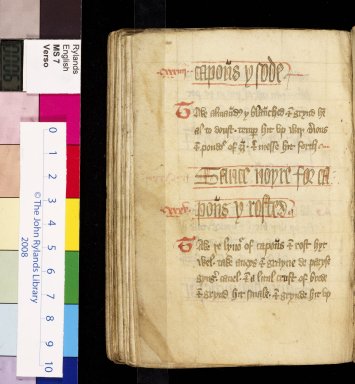 Rylands
English
MS 7
Verso
0 1 2 3 4 5 6 7 8 9 10
© The John Rylands Library
2008
capoūs y sode
Take almaūdes y blanched & grynde hē
al to doust. temp hit up wiþ
& poudr of & messe hit forth
Sauce noyre for ca
poūs y rosted
Tak þe lyuer of capoūs & rost hyt
wel. take anyes & grayne de parys
gyngr. canel. & a lytul crust of brede
& grynd hit smale. & grynde hit up